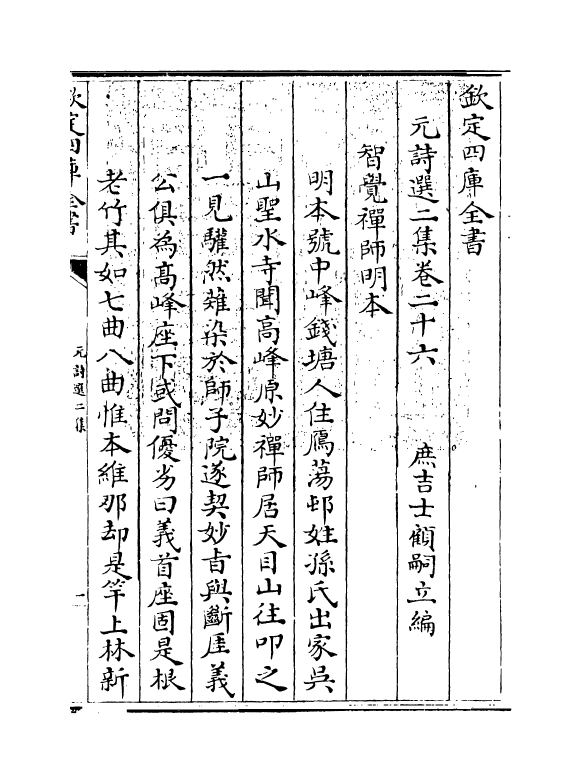 欽定四庫全書
元詩選二集卷二十六 庶吉士顧嗣立編
智覺禪師明本
明本號中峰錢塘人住鴈蕩邨姓孫氏出家吳
山聖水寺聞高峰原妙禪師居天目山往叩之
一見驩然薙染於師子院遂契妙旨與斷厓義
公俱為高峰座下或問優劣曰義首座固是根
老竹其如七曲八曲惟本維那却是竿上林新
欽定四庫全書
元詩選二集
一